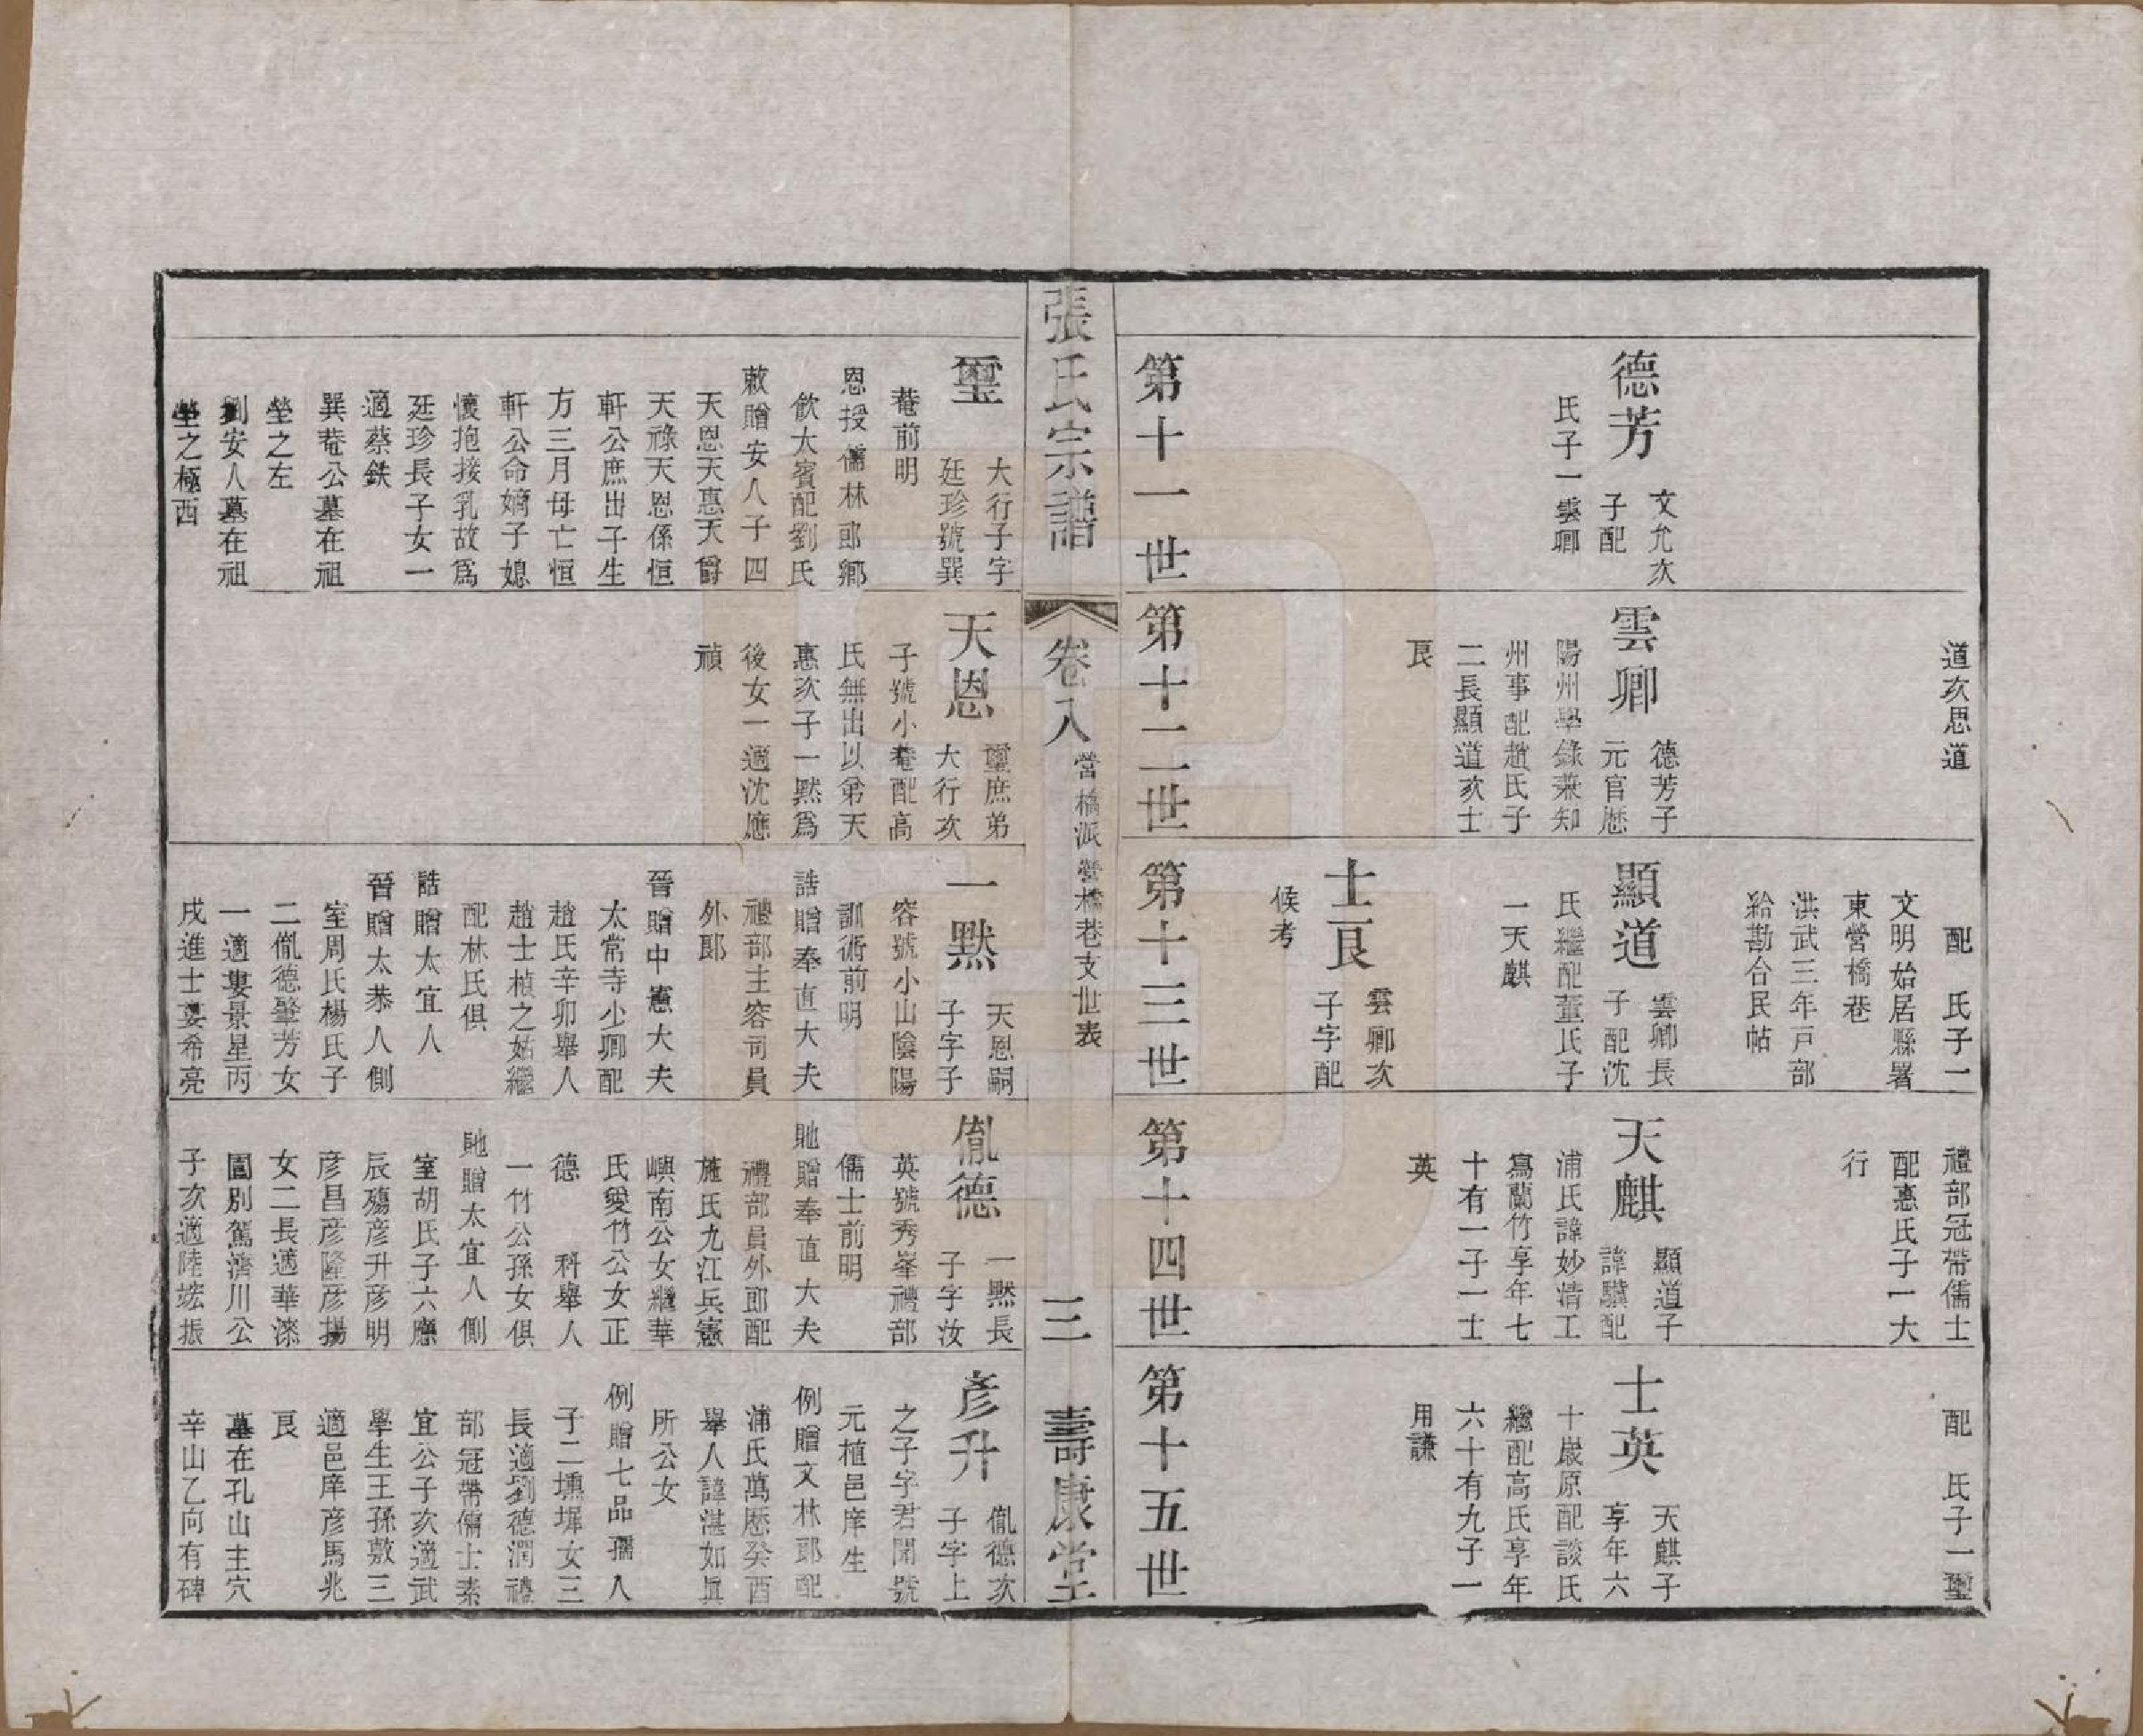 道次思道
配　氏子一
文明始居縣署
東營橋巷
洪武三年戸部
給勘合民帖
禮部冠帶儒士
配惠氏子一大
行
配　氏子一璽
德芳
文允次
子配
氏子一雲卿
雲卿
德芳子
元官歷
陽州學錄兼知
州事配趙氏子
二長顯道次士
良
顯道
雲卿長
子配沈
氏繼配董氏子
一天麒
士良
雲卿次
子字配
候考
天麒
顯道子
諱驥配
浦氏諱妙清工
寫蘭竹享年七
十有一子一士
英
士英
天麒子
享年六
十歲原配談氏
繼配高氏享年
六十有九子一
用謙
第十一世
第十二世
第十三世
第十四世
第十五世
張氏宗譜
卷八
營橋派營橋巷支世表
三
壽康堂
璽
大行子字
廷珍號巽
菴前明
恩授儒林郎鄉
飲大賓配劉氏
敕贈安人子四
天恩天惠天爵
天祿天恩係恒
軒公庶出子生
方三月母亡恒
軒公命嫡子媳
懷抱接乳故爲
廷珍長子女一
適蔡鉄
巽菴公墓在祖
塋之左
劉安人墓在祖
塋之極西
天恩
璽庶弟
大行次
子號小菴配高
氏無出以弟天
惠次子一默爲
後女一適沈應
禎
一默
天恩嗣
子字子
容號小山陰陽
訓術前明
誥贈奉直大夫
禮部主客司員
外郎
晉贈中憲大夫
太常寺少卿配
趙氏辛卯舉人
趙士楨之姑繼
配林氏俱
誥贈太宜人
晉贈太恭人側
室周氏楊氏子
二胤德肇芳女
一適婁景星丙
戌進士婁希亮
胤德
一默長
子字汝
英號秀峯禮部
儒士前明
貤贈奉直大夫
禮部員外郎配
施氏九江兵憲
嶼南公女繼華
氏愛竹公女正
德　　科舉人
一竹公孫女俱
貤贈太宜人側
室胡氏子六應
辰殤彦升彦明
彦昌彦隆彦揚
女二長適華滐
圊別駕濟川公
子次適陸㙐振
彦升
胤德次
子字上
之子字君聞號
元植邑庠生
例贈文林郎配
浦氏萬歷癸酉
舉人諱湛如眞
所公女
例贈七品孺人
子二壎墀女三
長適劉德潤禮
部冠帶儒士素
宜公子次適武
學生王孫敷三
適邑庠彦馬兆
良
墓在孔山主穴
辛山乙向有碑